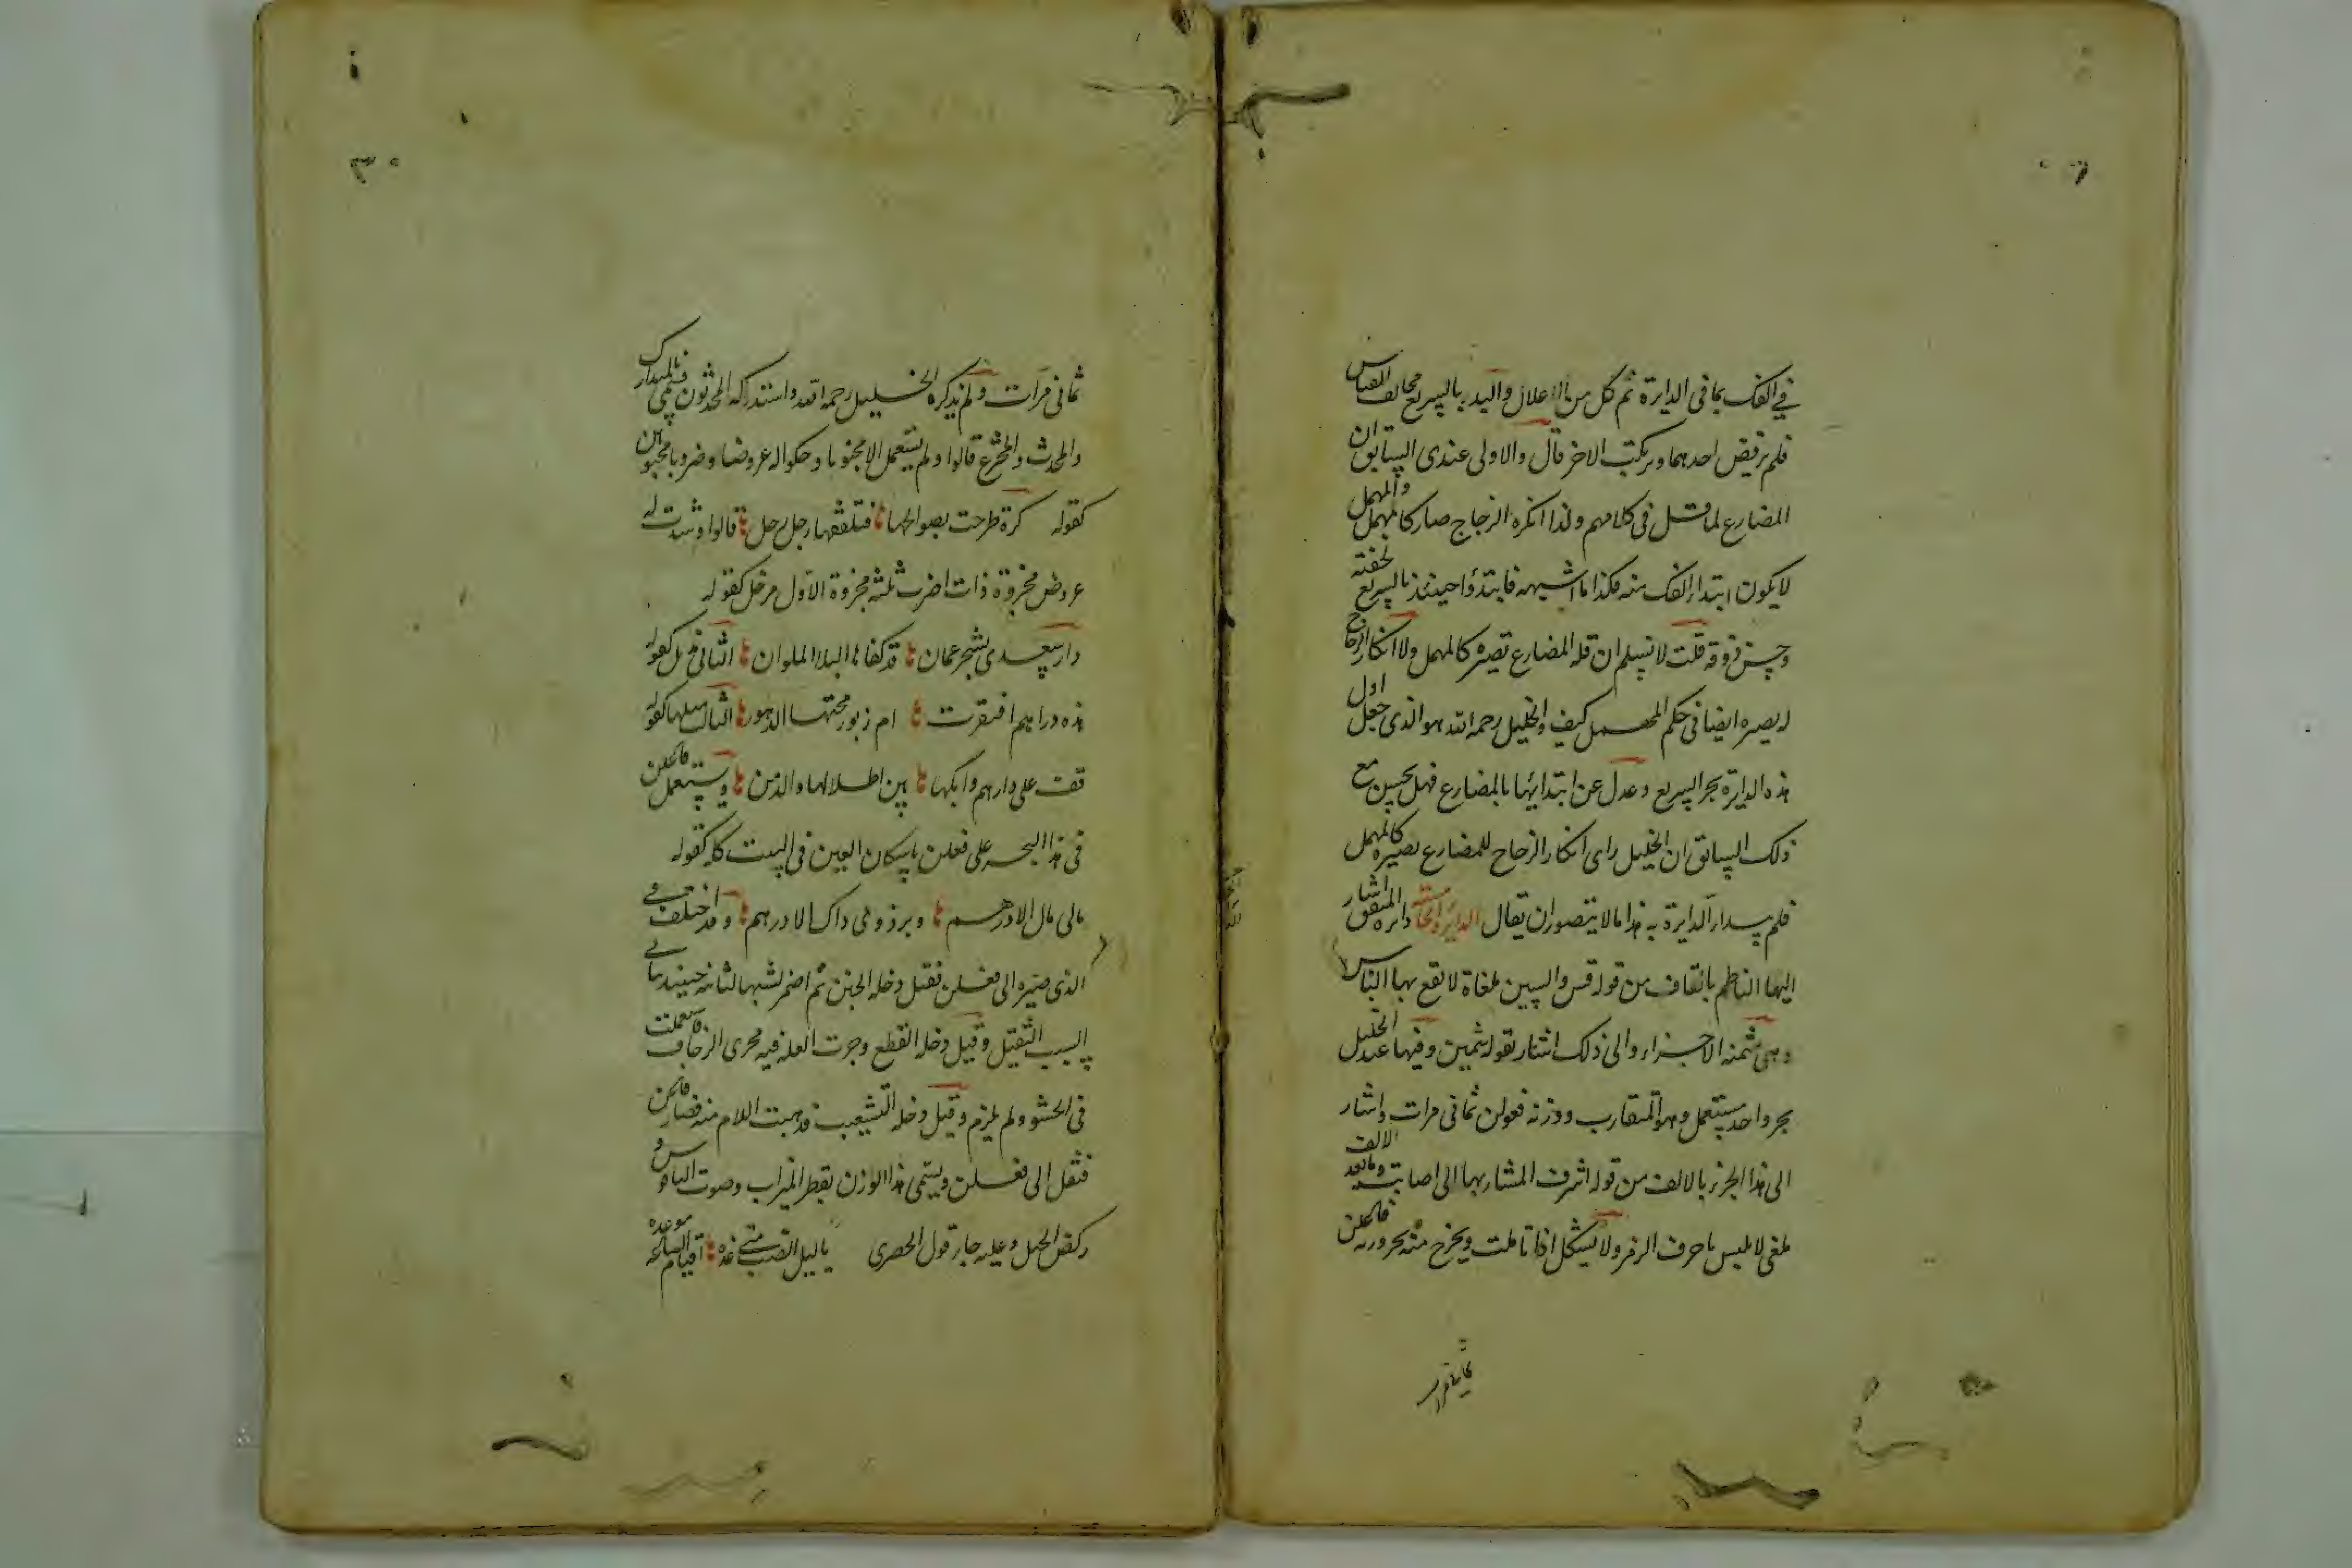 في الفك بما في الدايرة ثم كل من الاعلال والبد بالسريع مخالف القياس
فلم يرفض احدهما ويرتكب الاخر قال والاولى عندي السابق ان
المضارع لما قل في كلامهم ولذا انكره الزجاج صار كالمهمل والمهمل
لا يكون ابتداء الفك منه فكذا ما اشبهه فابتدؤا حينئذ بالسريع لخفته
وحسن ذوقه قلت لا نسلم ان قلة المضارع تصيره كالمهمل ولا انكار الزجاج
له يصيره ايضا في حكم المهمل كيف والخليل رحمه الله هو الذي جعل اول
هذه الدايرة بحر السريع وعدل عن ابتدايها بالمضارع فهل يحسن مع
ذلك السابق ان الخليل راى انكار الزجاج للمضارع يصيره كالمهمل
فلم يبدا الدايرة به هذا ما لا يتصور ان يقال الدايرة الخامسة دائرة المتفق اشار
اليها الناظم بالقاف من قوله قس والسين ملغاة لا يقع بها الباس
وهي مثمنه الاجزاء والى ذلك اشار بقوله ثمين وفيها عند الخليل
بحر واحد مستعمل وهو المتقارب ووزنه فعولن ثماني مرات واشار
الى هذا الجزء بالالف من قوله اشرف المشار بها الى اصابت وما بعد الالف
ملغى لا يلبس باحرف الرمز ولا يشكل اذا تاملت ويخرج منه بحر وزنه فاعلن
ثماني مرات
ثماني مرات ولم يذكره الخليل رحمه الله واستدركه المحدثون فسمي المتدارك
والمحدث والمخترع قالوا ولم يستعمل الا مخبونا وحكوا له عروضا وضربا مخبونين
كقوله كرة طرحت بصوالجها فتلقفها رجل رجل قالوا وشذت له
عروض مجزوة ذات اضرب ثلثه مجزوة الاول مرفل كقوله
دار سعدى بشحر عمان قد كفاها البلا الملوان الثاني مذيل كقوله
هذه دراهم اقفرت ام زبور محتها الدهور الثالث مثلها كقوله
قف على دارهم وابكيا بين اطلالها والدمن ويستعمل فاعلن
في هذا البحر على فعلن باسكان العين في البيت كله كقوله
مالي مال الا درهم وبرذوني ذاك الادهم وقد اختلف في
الذي صيره الى فعلن فقيل دخله الخبن ثم اضمر لشبهه الثانه حينئذ بثاني
السبب الثقيل وقيل دخله القطع وجرت العله فيه مجرى الزحاف فاستعملت
في الحشو ولم يلزم وقيل دخله التشعيث فذهبت اللام منه فصار فاعن
فنقل الى فعلن ويسمى هذا الوزن بقطر الميزاب وصوت الناقوس و
ركض الخيل وعليه جاء قول الحصري يا ليل الصب متى غده اقيام الساعة موعده